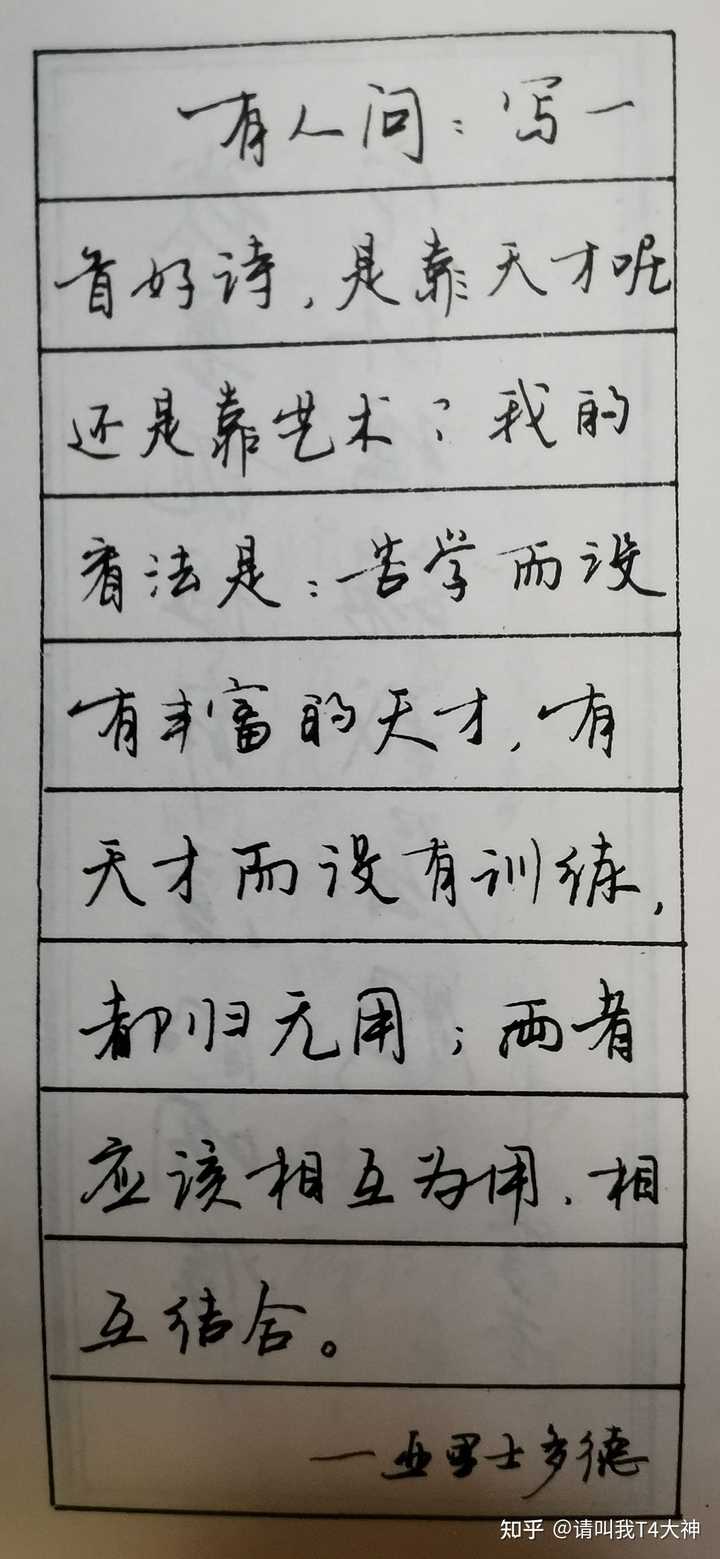 有人问:写一
首好诗,是靠天才呢
还是靠艺术?我的
看法是:苦学而没
有丰富的天才,有
天才而没有训练,
都归无用;两者
应该相互为用、相
互结合。
—亚里士多德
知乎 @请叫我T4大神